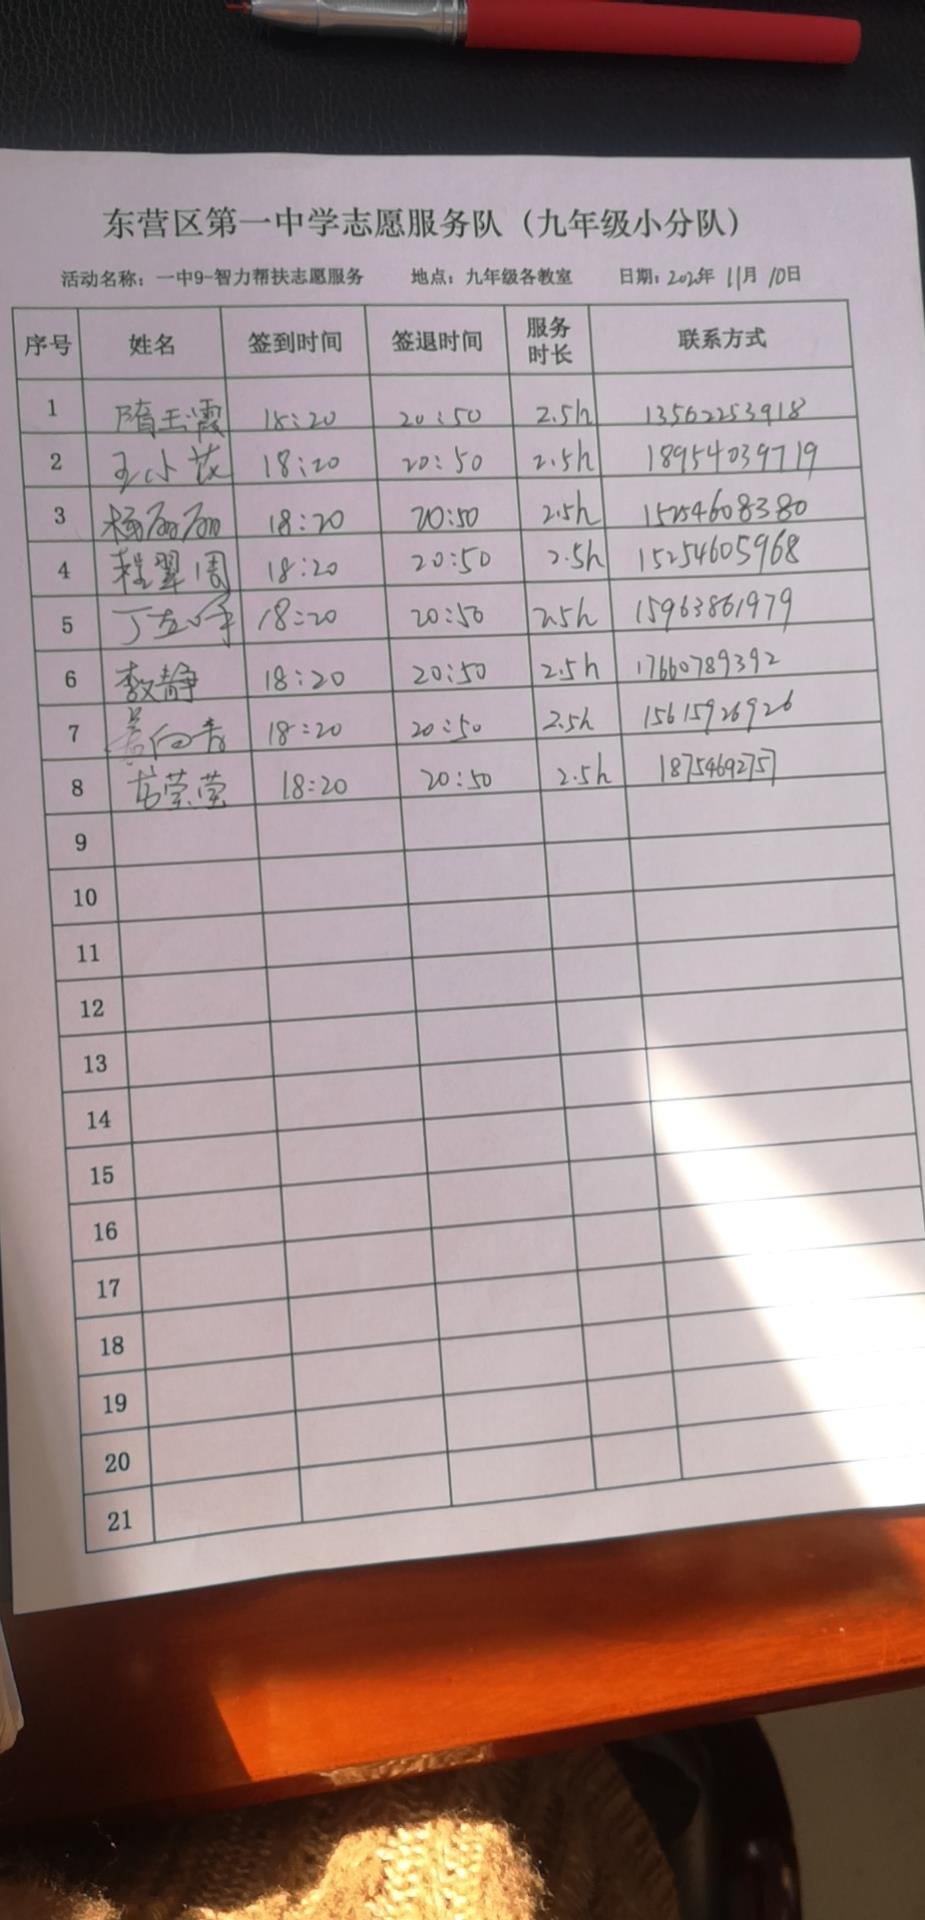 东营区第一中学志愿服务队（九年级小分队）
活动名称：一中9-智力帮扶志愿服务 地点：九年级各教室 日期：2020年 11月 10日
序号 姓名 签到时间 签退时间 服务时长 联系方式
1 隋玉霞 18:20 20:50 2.5h 13562253918
2 王小花 18:20 20:50 2.5h 18954039719
3 杨丽丽 18:20 20:50 2.5h 15254608380
4 程翠周 18:20 20:50 2.5h 15254605968
5 18:20 20:50 2.5h 15963861979
6 李静 18:20 20:50 2.5h 17660789392
7 18:20 20:50 2.5h 15615926926
8 莹莹 18:20 20:50 2.5h 18754692757
9
10
11
12
13
14
15
16
17
18
19
20
21